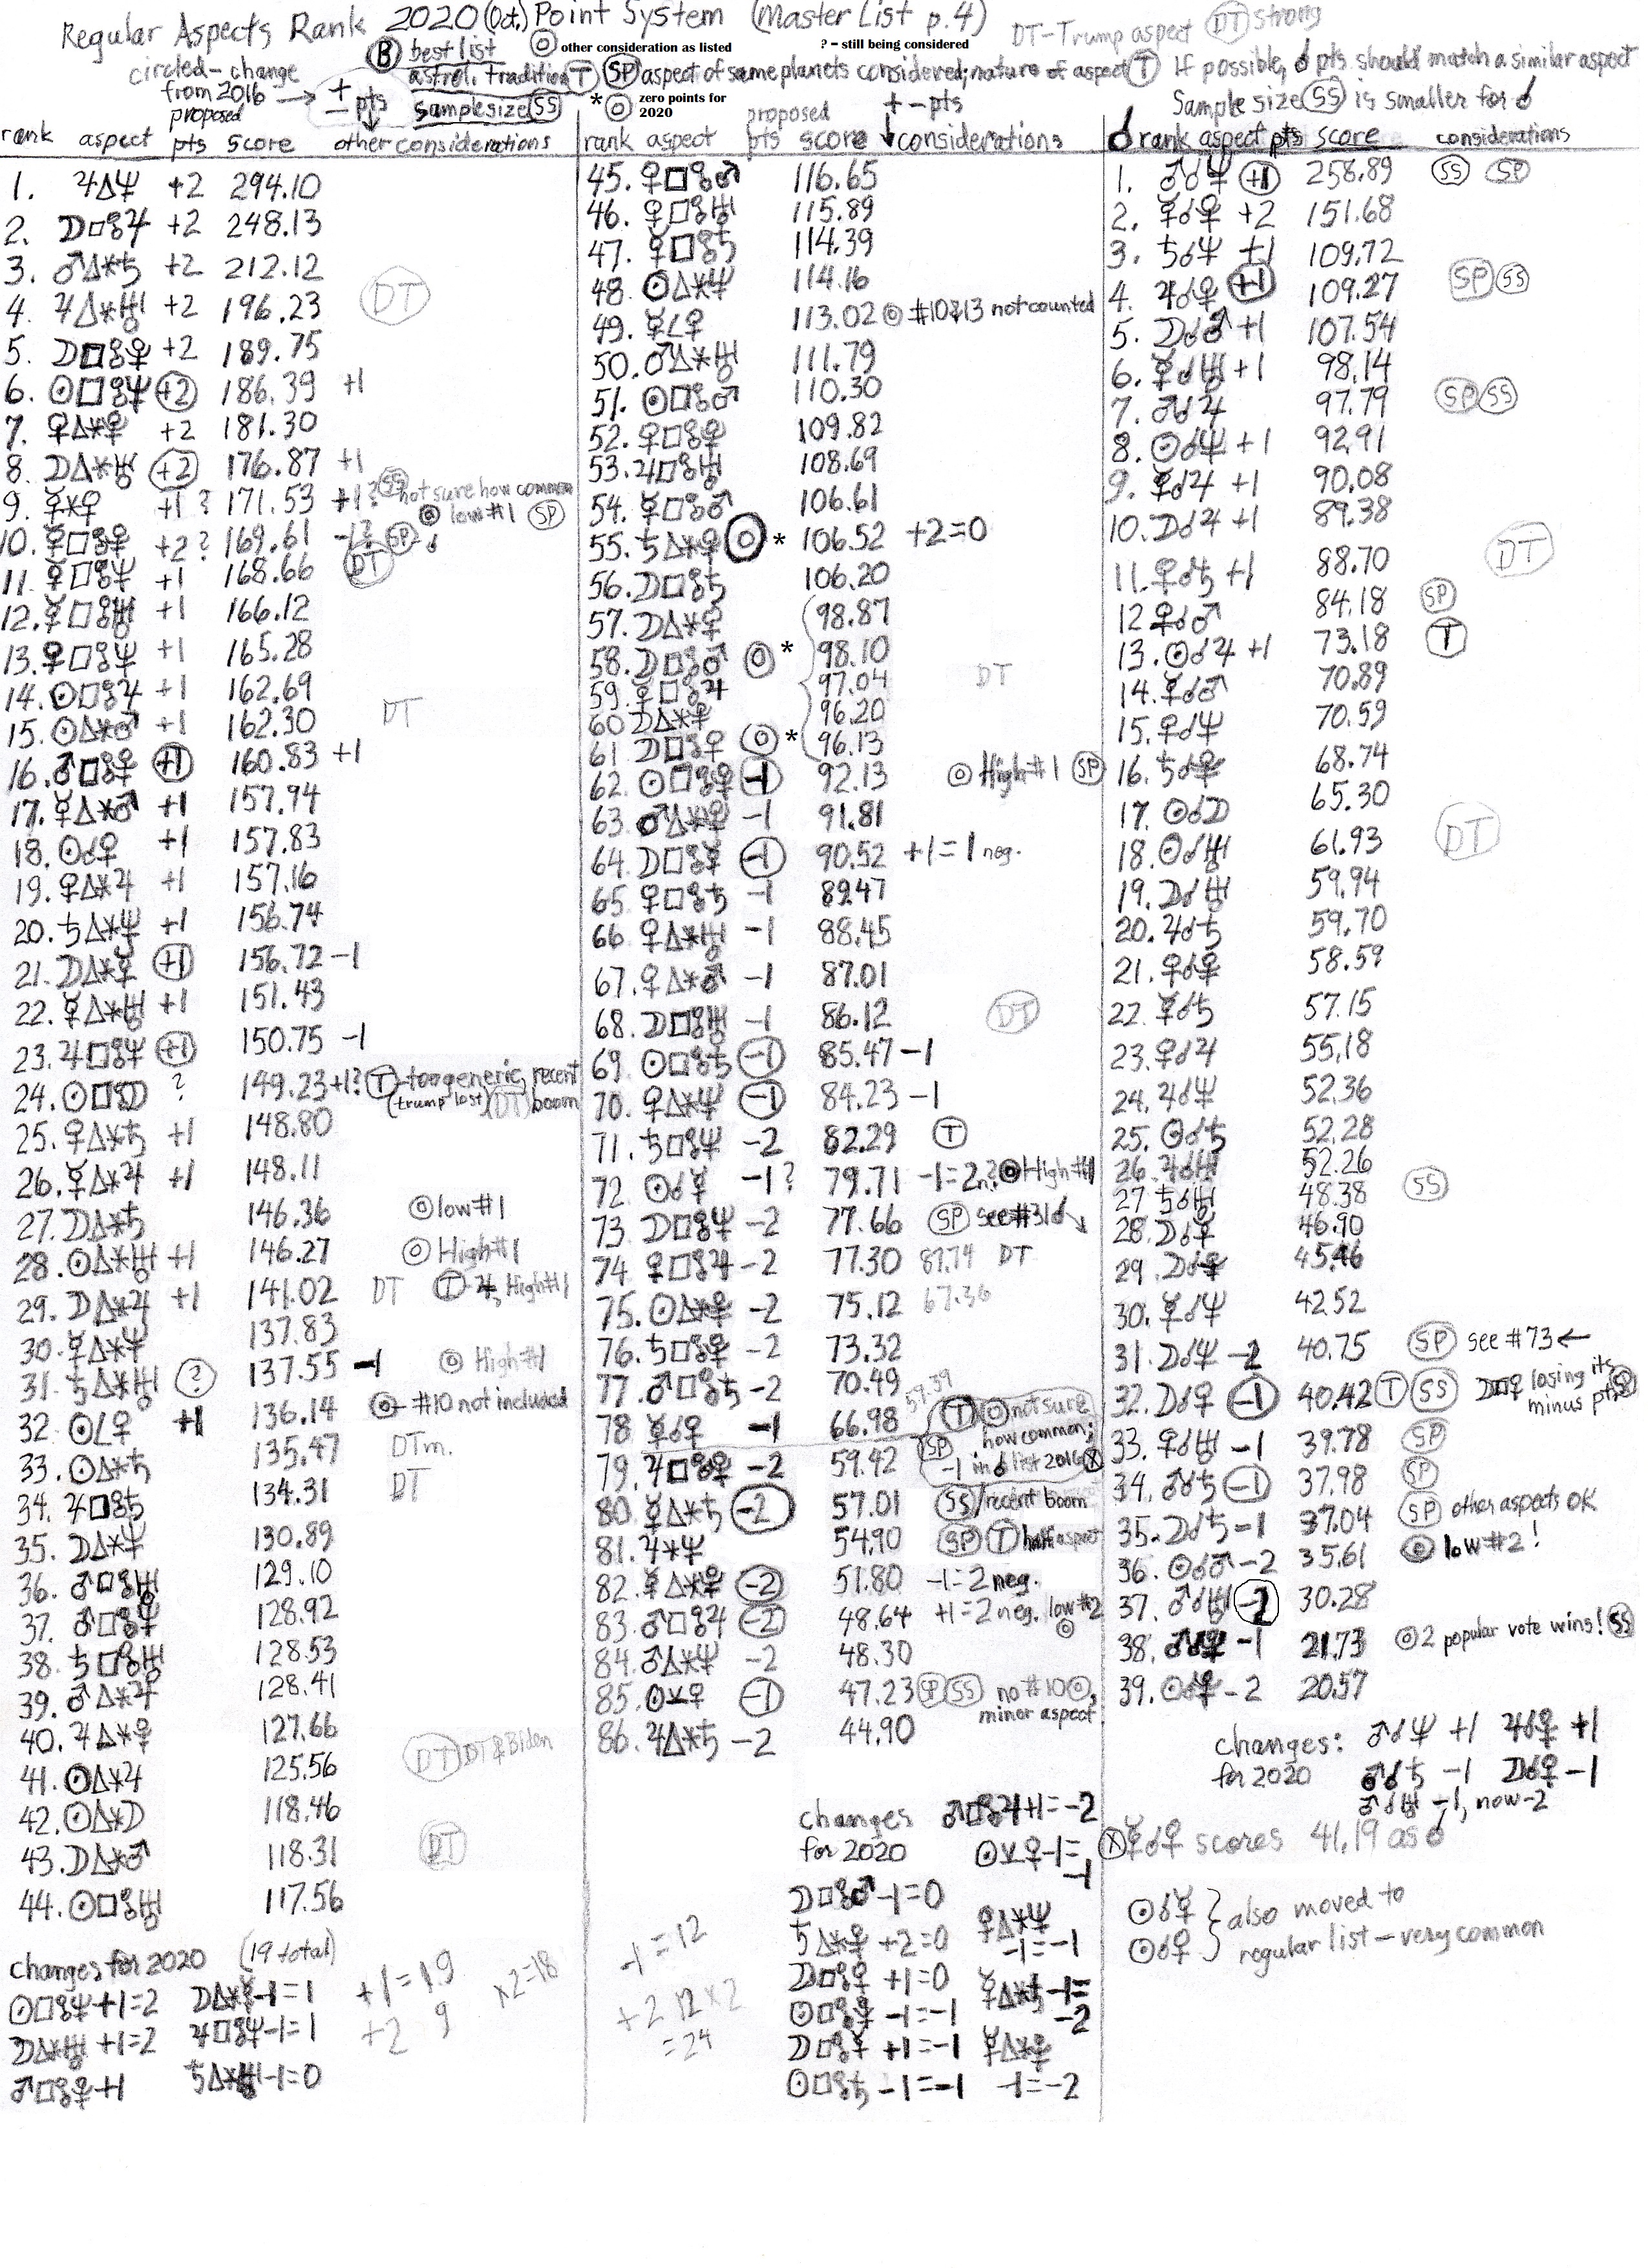 Regular Aspects Rank 2020 (Oct.) Point System (Master List p.4)
DT-Trump aspect (DT) strong
(B) best list ◎ other consideration as listed ? - still being considered
circled - change from 2016 → + - pts
astrol. tradition (T) (SP) aspect of same planets considered; nature of aspect (T) If possible, ☌ pts. should match a similar aspect
Sample size (SS) * ◎ zero points for 2020
Sample size (SS) is smaller for ☌
rank aspect proposed pts score other considerations
1. ♃△♆ +2 294.10
2. ☽□☍♃ +2 248.13
3. ♂△⚹♄ +2 212.12
4. ♃△⚹♅ +2 196.23 (DT)
5. ☽□☍♇ +2 189.75
6. ☉□☍♆ (+2) 186.39 +1
7. ♀△⚹♇ +2 181.30
8. ☽△⚹♅ (+2) 176.87 +1
9. ☿⚹♀ +1 ? 171.53 +1? (SS) not sure how common ◎ low #1 (SP)
10. ☿□☍♇ +2? 169.61 -1? (SP) ☌
11. ☿□☍♆ +1 168.66 (DT)
12. ☿□☍♅ +1 166.12
13. ♀□☍♆ +1 165.28
14. ☉□☍♃ +1 162.69
15. ☉△⚹♂ +1 162.30 DT
16. ♂□☍♇ (+1) 160.83 +1
17. ☿△⚹♂ +1 157.94
18. ☉☌♀ +1 157.83
19. ♀△⚹♃ +1 157.16
20. ♄△⚹♆ +1 156.74
21. ☽△⚹☿ (+1) 156.72 -1
22. ☿△⚹♅ +1 151.43
23. ♃□☍♆ (+1) 150.75 -1
24. ☉□☍☽ ? 149.23 +1? (T) - too generic, recent (trump lost) (DT) boom
25. ♀△⚹♄ +1 148.80
26. ☿△⚹♃ +1 148.11
27. ☽△⚹♄ 146.36 ◎ low #1
28. ☉△⚹♅ +1 146.27 ◎ High #1
29. ☽△⚹♃ +1 141.02 DT (T) - ♃, High #1
30. ☿△⚹♆ 137.83
31. ♄△⚹♅ (?) 137.55 -1 ◎ High #1
32. ☉∠♀ +1 136.14 ◎ - #10 not included
33. ☉△⚹♄ 135.47 DTm.
34. ♃□☍♄ 134.31 DT
35. ☽△⚹♆ 130.89
36. ♂□☍♅ 129.10
37. ♂□☍♆ 128.92
38. ♄□☍♅ 128.53
39. ♂△⚹♃ 128.41
40. ♃△⚹♇ 127.66
41. ☉△⚹♃ 125.56 (DT) DT & Biden
42. ☉△⚹☽ 118.46
43. ☽△⚹♂ 118.31 (DT)
44. ☉□☍♅ 117.56
changes for 2020 (19 total)
☉□☍♆ +1=2 ☽△⚹☿ -1=1 +1=19 x2=18
☽△⚹♅ +1=2 ♃□☍♆ -1=1 +2 9
♂□☍♇ +1 ♄△⚹♅ -1=0
rank aspect proposed pts score + - pts ↓ considerations
45. ♀□☍♂ 116.65
46. ♀□☍♅ 115.89
47. ☿□☍♄ 114.39
48. ☉△⚹♆ 114.16
49. ☿∠♀ 113.02 ◎ #10&13 not counted
50. ♂△⚹♅ 111.79
51. ☉□☍♂ 110.30
52. ♀□☍♇ 109.82
53. ♃□☍♅ 108.69
54. ☿□☍♂ 106.61
55. ♄△⚹♇ ◎ * 106.52 +2=0
56. ☽□☍♄ 106.20
57. ☽△⚹♀ 98.87
58. ☽□☍♂ ◎ * 98.10
59. ☿□☍♃ 97.04 DT
60 ☽△⚹♇ 96.20
61 ☽□☍♀ ◎ * 96.13
62. ☉□☍♇ (-1) 92.13 ◎ High #1 (SP)
63. ♂△⚹♇ -1 91.81
64. ☽□☍☿ (-1) 90.52 +1=1 neg.
65 ♀□☍♄ -1 89.47
66 ♀△⚹♅ -1 88.45
67. ♀△⚹♂ -1 87.01
68. ☽□☍♅ -1 86.12 (DT)
69. ☉□☍♄ (-1) 85.47 -1
70. ♀△⚹♆ (-1) 84.23 -1
71. ♄□☍♆ -2 82.29 (T)
72. ☉☌☿ -1? 79.71 -1=2n.? ◎ High #1
73 ☽□☍♆ -2 77.66 (SP) see #31☌
74 ♀□☍♃ -2 77.30 87.74 DT
75. ☉△⚹♇ -2 75.12 67.36
76. ♄□☍♇ -2 73.32
77. ♂□☍♄ -2 70.49 59.39
78 ☿☌♀ -1 66.98 (T) ◎ not sure how common; (SP) -1 in ☌ list 2016 (X)
79. ♃□☍♇ -2 59.42
80. ☿△⚹♄ (-2) 57.01 (SS)/recent boom
81. ♃⚹♆ 54.90 (SP) (T) half aspect
82. ☿△⚹♇ (-2) 51.80 -1=2 neg.
83. ♂□☍♃ (-2) 48.64 +1=2 neg. low #2 ◎
84. ♂△⚹♆ -2 48.30
85. ☉⚺♀ (-1) 47.23 (T) (SS) no #10 ◎, minor aspect
86. ♃△⚹♄ -2 44.90
changes for 2020 ♂□☍♃ +1=-2
☉⚺♀ -1=-1
☽□☍♂ -1=0
♄△⚹♇ +2=0 ♀△⚹♆ -1=-1
☽□☍♀ +1=0 ☿△⚹♄ -1=-2
☉□☍♇ -1=-1
☽□☍☿ +1=-1 ☿△⚹♇ -1=-2
☉□☍♄ -1=-1
-1=12
+2 12 x2
=24
☌ rank aspect pts score considerations
1. ♂☌♆ (+1) 258.89 (SS) (SP)
2. ☿☌♇ +2 151.68
3. ♄☌♆ +1 109.72
4. ♃☌♇ (+1) 109.27 (SP) (SS)
5. ☽☌♂ +1 107.54
6. ☿☌♅ +1 98.14
7. ♂☌♃ 97.79 (SP) (SS)
8. ☉☌♆ +1 92.91
9. ☿☌♃ +1 90.08
10. ☽☌♃ +1 89.38
11. ♀☌♄ +1 88.70 (DT)
12 ♀☌♂ 84.18 (SP)
13. ☉☌♃ +1 73.18 (T)
14. ☿☌♂ 70.89
15. ♀☌♆ 70.59
16. ♄☌♇ 68.74
17. ☉☌☽ 65.30
18. ☉☌♅ 61.93 (DT)
19. ☽☌♅ 59.94
20. ♃☌♄ 59.70
21. ♀☌♇ 58.59
22. ☿☌♄ 57.15
23. ♀☌♃ 55.18
24. ♃☌♆ 52.36
25. ☉☌♄ 52.28
26. ♃☌♅ 52.26
27 ♄☌♅ 48.38 (SS)
28. ☽☌☿ 46.90
29. ☽☌♇ 45.46
30. ☿☌♆ 42.52
31. ☽☌♆ -2 40.75 (SP) see #73 ←
32. ☽☌♀ (-1) 40.42 (T) (SS) ☽□♀ losing its minus pts
33. ♀☌♅ -1 39.78 (SP)
34. ♂☌♄ (-1) 37.98 (SP)
35. ☽☌♄ -1 37.04 (SP) other aspects OK
36. ☉☌♂ -2 35.61 ◎ low #2!
37. ♂☌♅ (-2) 30.28
38. ♂☌♇ -1 21.73 ◎ 2 popular vote wins! (SS)
39. ☉☌♇ -2 20.57
changes: ♂☌♆ +1 ♃☌♇ +1
for 2020 ♂☌♄ -1 ☽☌♀ -1
♂☌♅ -1, now -2
(X) ☿☌♀ scores 41.19 as ☌
☉☌☿ } also moved to
☉☌♀ } regular list - very common